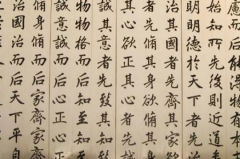 而后能得物有本
始知所先後則近道
明明德於天下者先
治其國者先齊其家
者先脩其身欲脩其
其心欲正其心者先
誠其意者先致其知
物物格而后知至知
誠意誠而后心正心
身脩而后家齊家
國治而后天下平自